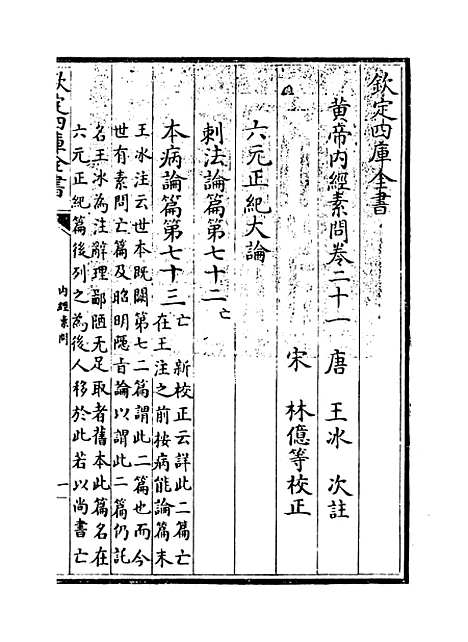 欽定四庫全書
黃帝內經素問卷二十一
唐 王冰 次註
宋 林億等校正
六元正紀大論
刺法論篇第七十二亡
本病論篇第七十三亡
新校正云詳此二篇亡
在王注之前按病能論篇末
王冰注云世本既闕第七二篇謂此二篇也而今
世有素問亡篇及昭明隱旨論以謂此二篇仍託
名王冰為注辭理鄙陋无足取者舊本此篇名在
六元正紀篇後列之為後人移於此若以尚書亡
欽定四庫全書
內經素問
一